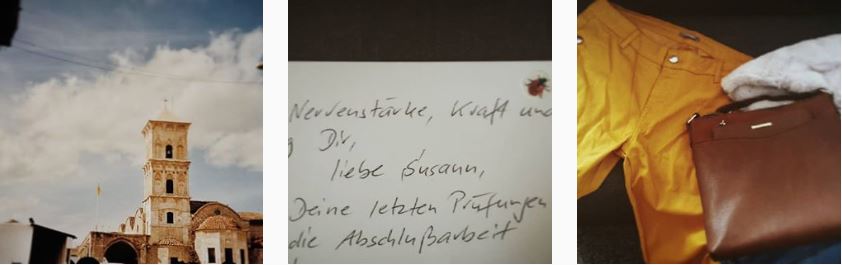 Nervenstärke, Kraft und
g Dir,
liebe Susann,
Deine letzten Prüfungen
die Abschlußarbeit